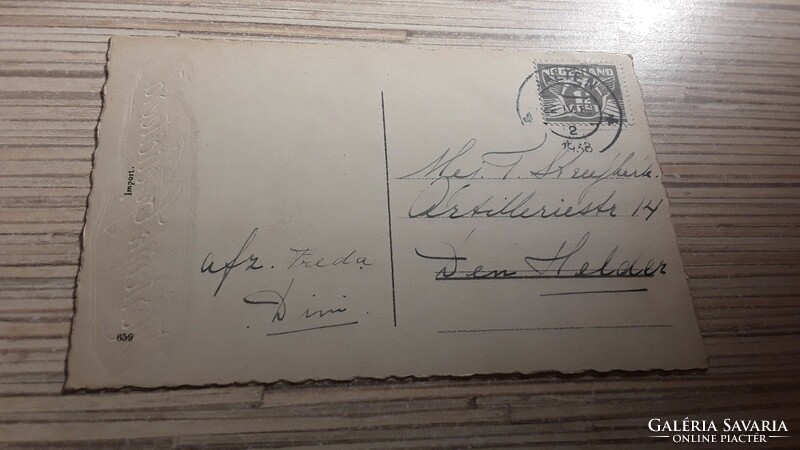 NEDERLAND
AALTEN
2
1938
Mej. T.
Artilleriestr 14
Den Helder
afz. Freda
Dini
Import.
659
GALÉRIA SAVARIA
ONLINE PIACTÉR